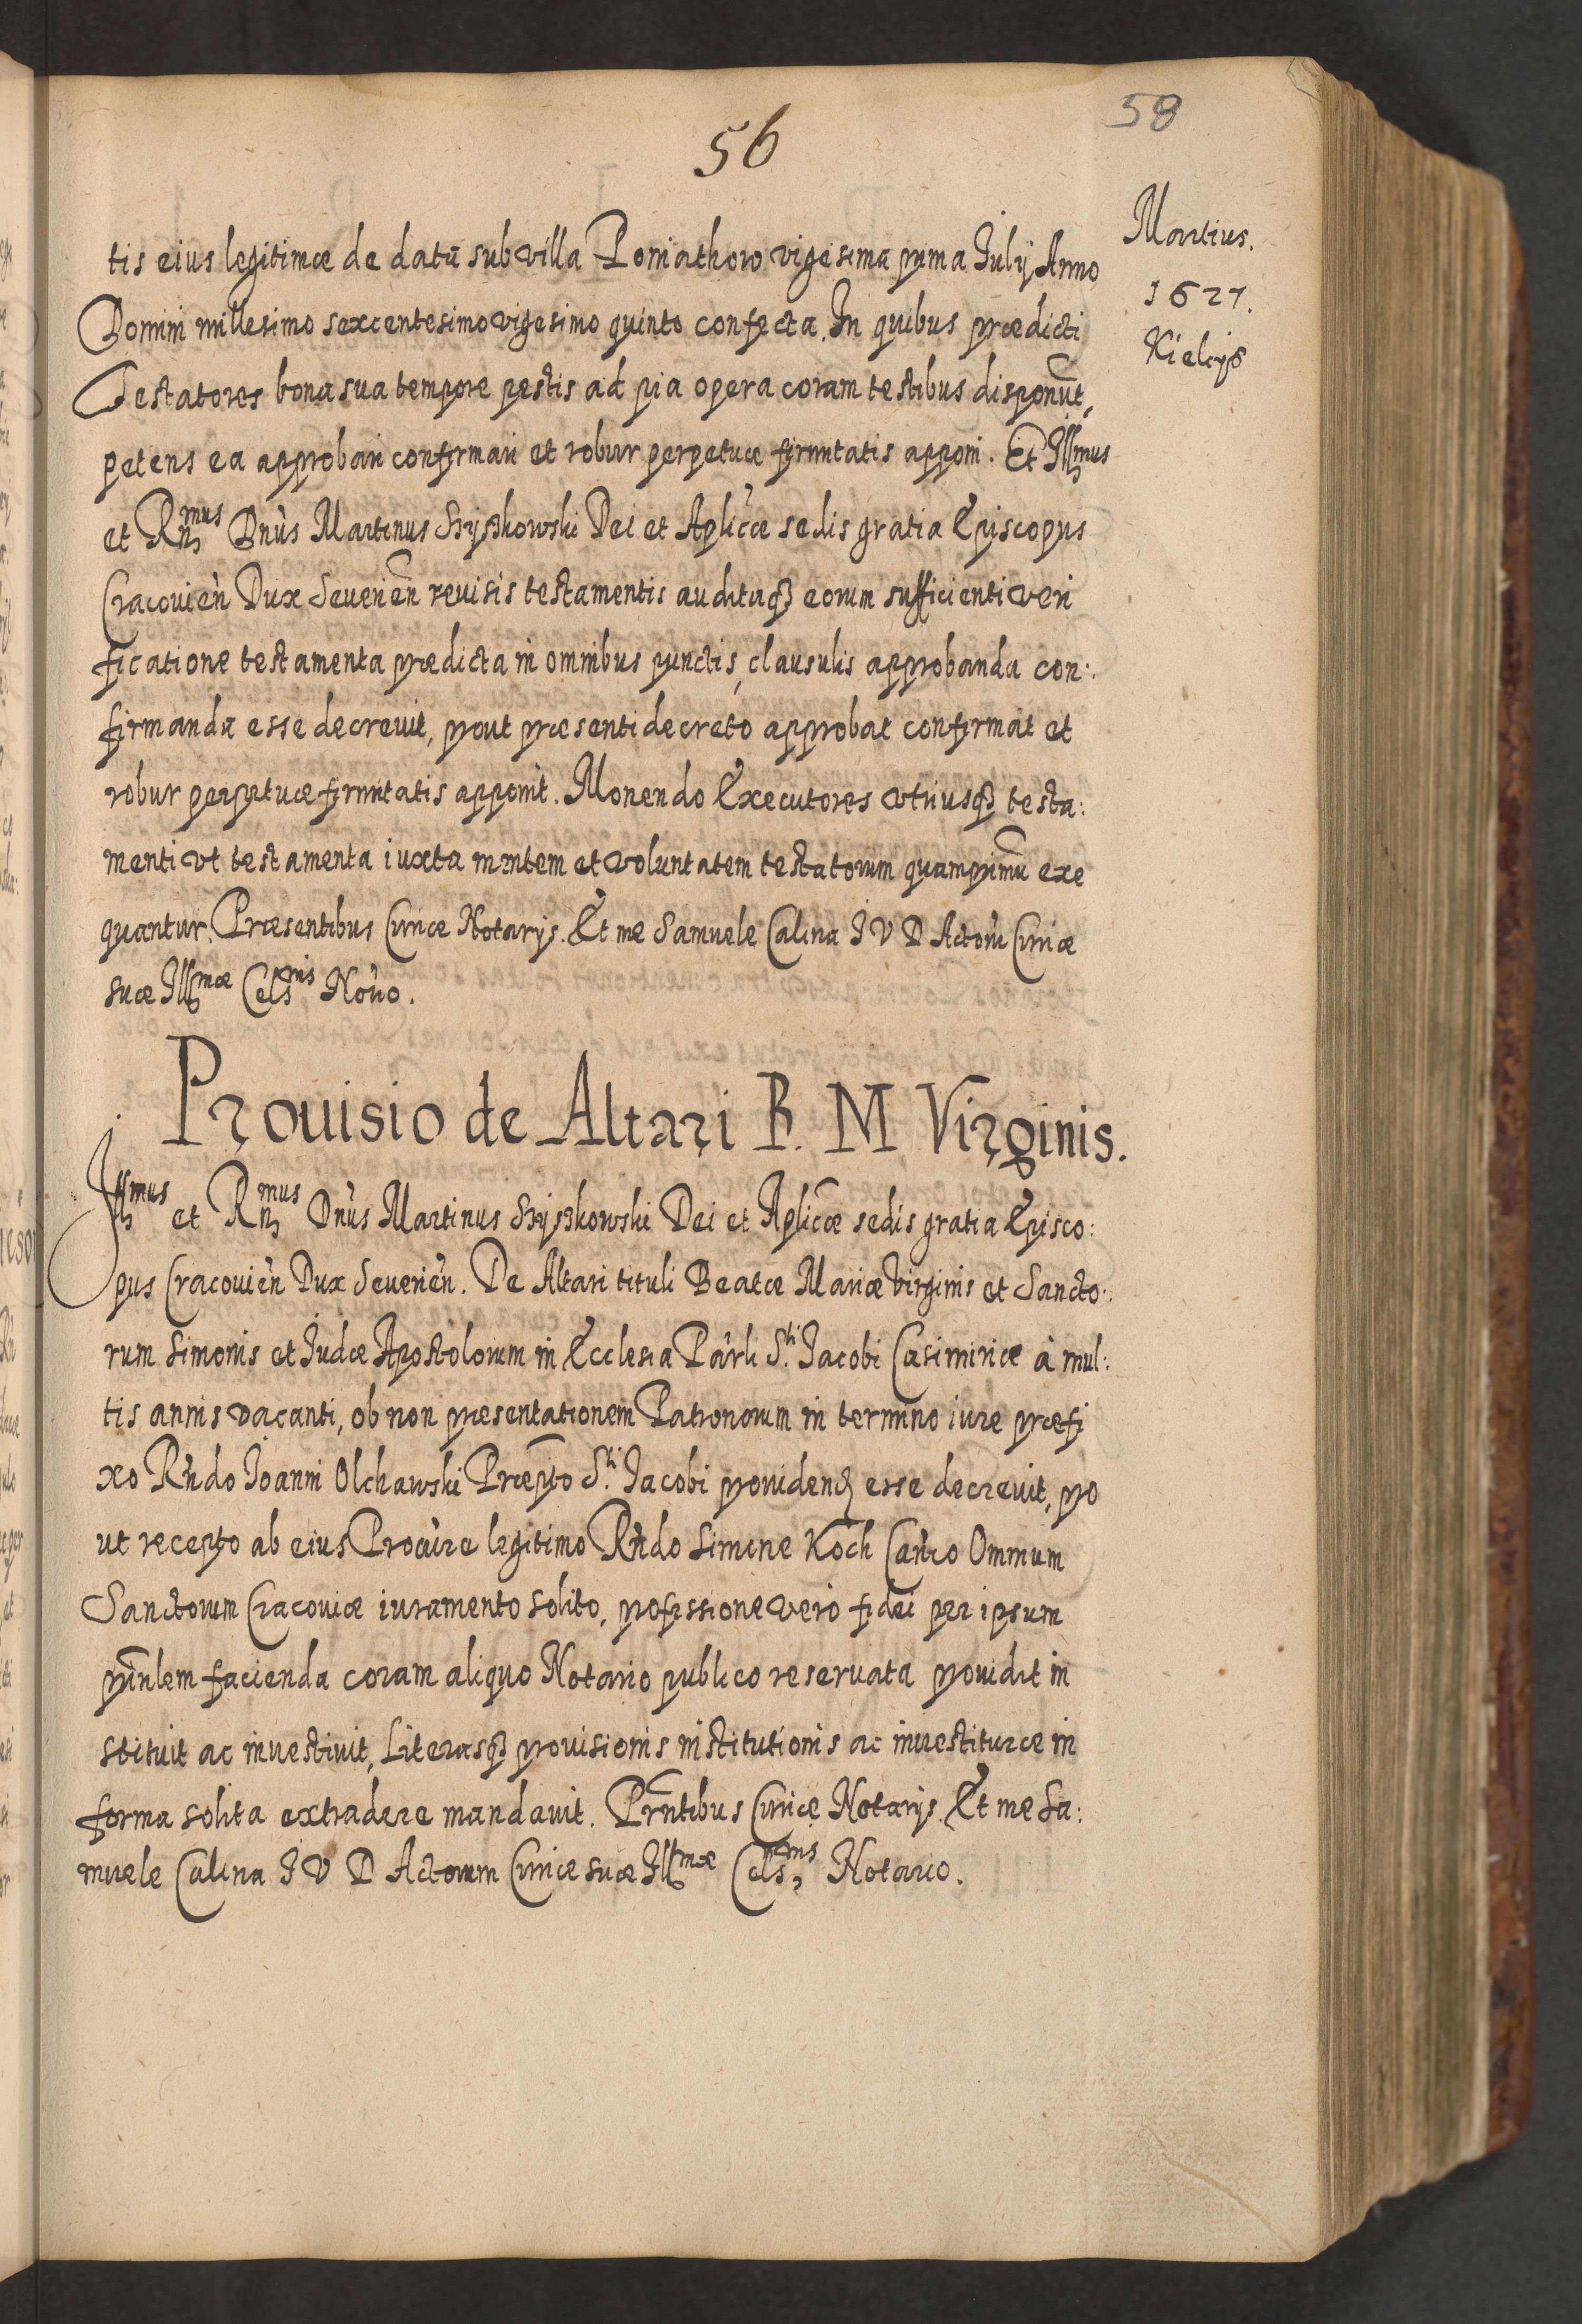 56
58
Martius.
1627.
Kielcijs
tis eius legitimæ de datū sub villa Poniathow vigesima prima Iulij Anno
Domini millesimo sexcentesimo vigesimo quinto confecta. In quibus prædicti
Testatores bona sua tempore pestis ad pia opera coram testibus disponūt,
petens ea approbari confirmari et robur perpetuæ firmitatis apponi. Et Illmus
et Rnmus Dnus Martinus Szyszkowski Dei et Aplicæ sedis gratia Episcopus
Cracovien Dux Severien revisis testamentis auditaq3 eorum sufficienti veri
ficatione testamenta prædicta in omnibus punctis, clausulis approbanda con:
firmanda esse decrevit, prout præsenti decreto approbat confirmat et
robur perpetuæ firmitatis apponit. Monendo Executores vtriusq3 testa:
menti vt testamenta iuxta mentem et voluntatem testatorum quamprimū exe
quantur. Præsentibus Curiæ Notarijs. Et me Samuele Calina I V D Actorū Curiæ
suæ Illmæ Celsnis Norio.
Provisio de Altari B. M Virginis.
Illmus et Rnmus Dnus Martinus Szyszkowski Dei et Aplicæ sedis gratia Episco:
pus Cracovien Dux Severien. De Altari tituli Beatæ Mariæ Virginis et Sancto:
rum Simonis et Iudæ Apostolorum in Ecclesia Parli S.ti Iacobi Casimiriæ à mul:
tis annis vacanti, ob non præsentationem Patronorum in termino iure præfi
xo Rndo Ioanni Olchawski Præpto S.ti Iacobi providend esse decrevit, pro
ut recepto ab eius Procure legitimo Rndo Simone Koch Canco Omnium
Sanctorum Cracoviæ iuramento solito, professione vero fidei per ipsum
prinlem facienda coram aliquo Notario publico reservata providit in
stituit ac investivit, Literasq3 provisionis institutionis ac investituræ in
forma solita extradere mandavit. Prntibus Curiæ Notarijs. Et me Sa:
muele Calina I V D Actorum Curiæ suæ Illmæ Celsnis Notario.